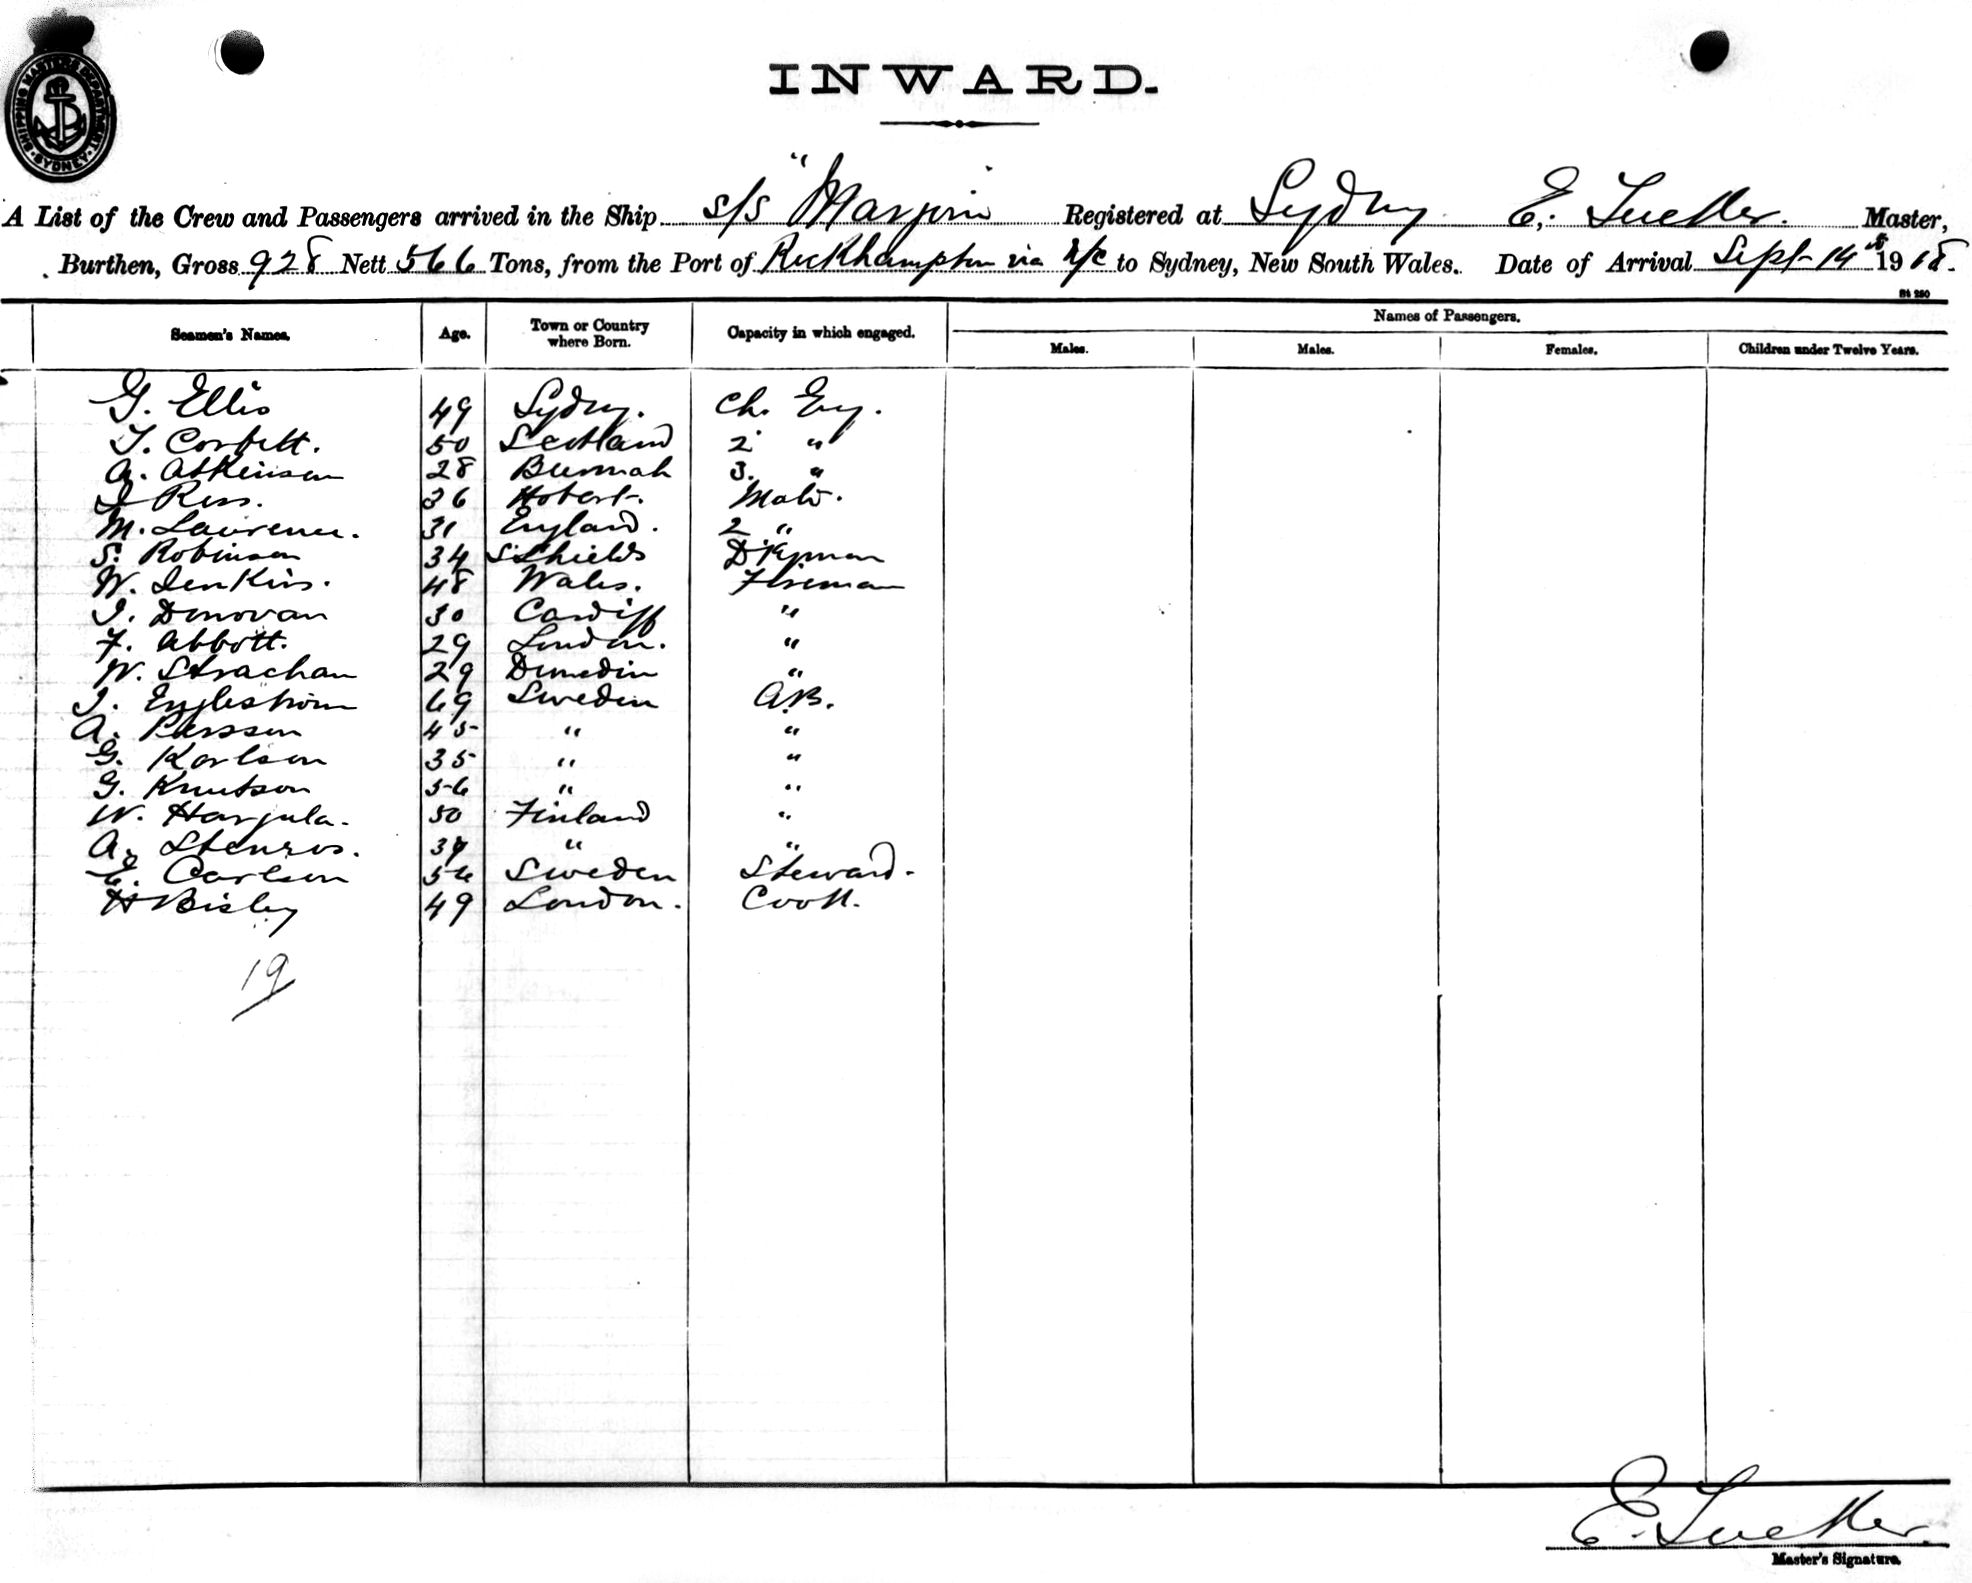 SHIPPING MASTERS DEPARTMENT SYDNEY
INWARD.
A List of the Crew and Passengers arrived in the Ship s/s "Marjorie" Registered at Sydney E. Tucker. Master,
Burthen, Gross 928 Nett 566 Tons, from the Port of Rockhampton via N/C to Sydney, New South Wales. Date of Arrival Sept 14th 1918.
St 250
Seamen's Names. Age. Town or Country where Born. Capacity in which engaged. Names of Passengers.
Males. Males. Females. Children under Twelve Years.
G. Ellis 49 Sydney. Ch. Eng.
T. Corbett. 50 Scotland 2 "
A. Atkinson 28 Burmah 3. "
J Ross. 36 Hobart. Mate.
M. Lawrence. 31 England. 2 "
S. Robinson 34 S Shields D'kyman
W. Jenkins. 48 Wales. Fireman
J. Donovan 30 Cardiff "
F. Abbott. 29 London. "
W. Strachan 29 Dunedin "
J. Englestrom 69 Sweden A.B.
A. Persson 45 " "
G. Karlson 35 " "
G. Knutson 56 " "
W. Harjula. 50 Finland "
A. Stenros. 39 " "
E. Carlson 56 Sweden Steward.
H Bisley 49 London. Cook.
19
E. Tucker.
Master's Signature.